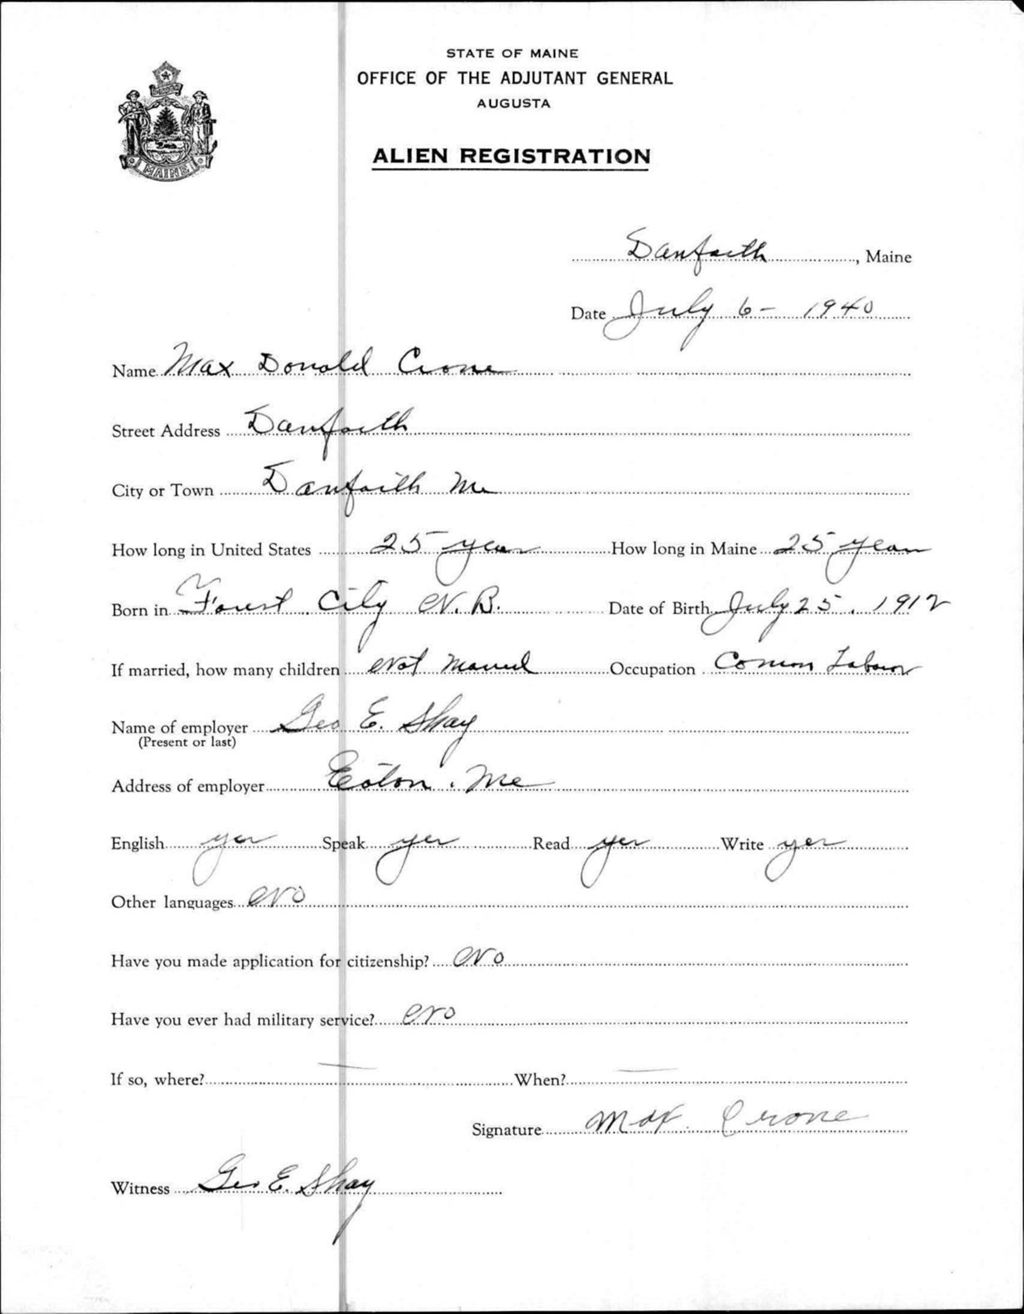 STATE OF MAINE
OFFICE OF THE ADJUTANT GENERAL
AUGUSTA
ALIEN REGISTRATION
MAINE
Danforth, Maine
Date July 6- 1940
Name Max Donald Crone
Street Address Danforth
City or Town Danforth Me
How long in United States 25 years How long in Maine 25 years
Born in Forest City N.B. Date of Birth July 25, 1912
If married, how many children Not Married Occupation Common Labour
Name of employer Geo E. Shay
(Present or last)
Address of employer Eaton, Me
English yes Speak yes Read yes Write yes
Other languages No
Have you made application for citizenship? No
Have you ever had military service? No
If so, where? — When? —
Signature Max Crone
Witness Geo E. Shay